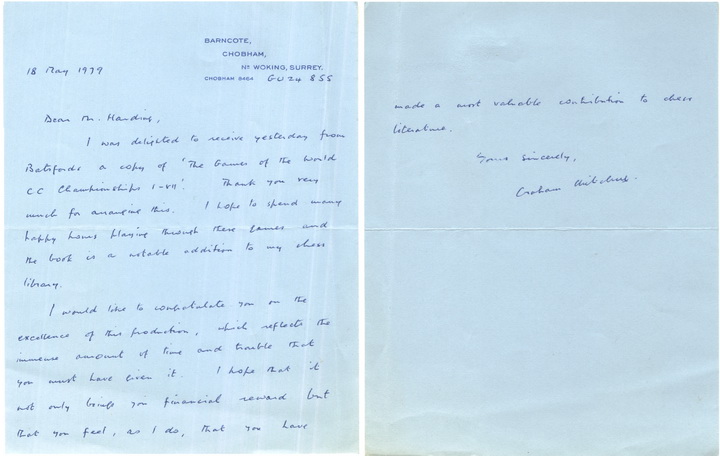 BARNCOTE,
CHOBHAM,
Nr WOKING, SURREY.
CHOBHAM 8484 GU24 8SS
18 May 1979
Dear Mr. Harding,
I was delighted to receive yesterday from
Batsfords a copy of 'The Games of the World
CC Championships I-VII'. Thank you very
much for arranging this. I hope to spend many
happy hours playing through these games and
the book is a notable addition to my chess
library.
I would like to congratulate you on the
excellence of this production, which reflects the
immense amount of time and trouble that
you must have given it. I hope that it
not only brings you financial reward but
that you feel, as I do, that you have
made a most valuable contribution to chess
literature.
Yours sincerely,
Graham